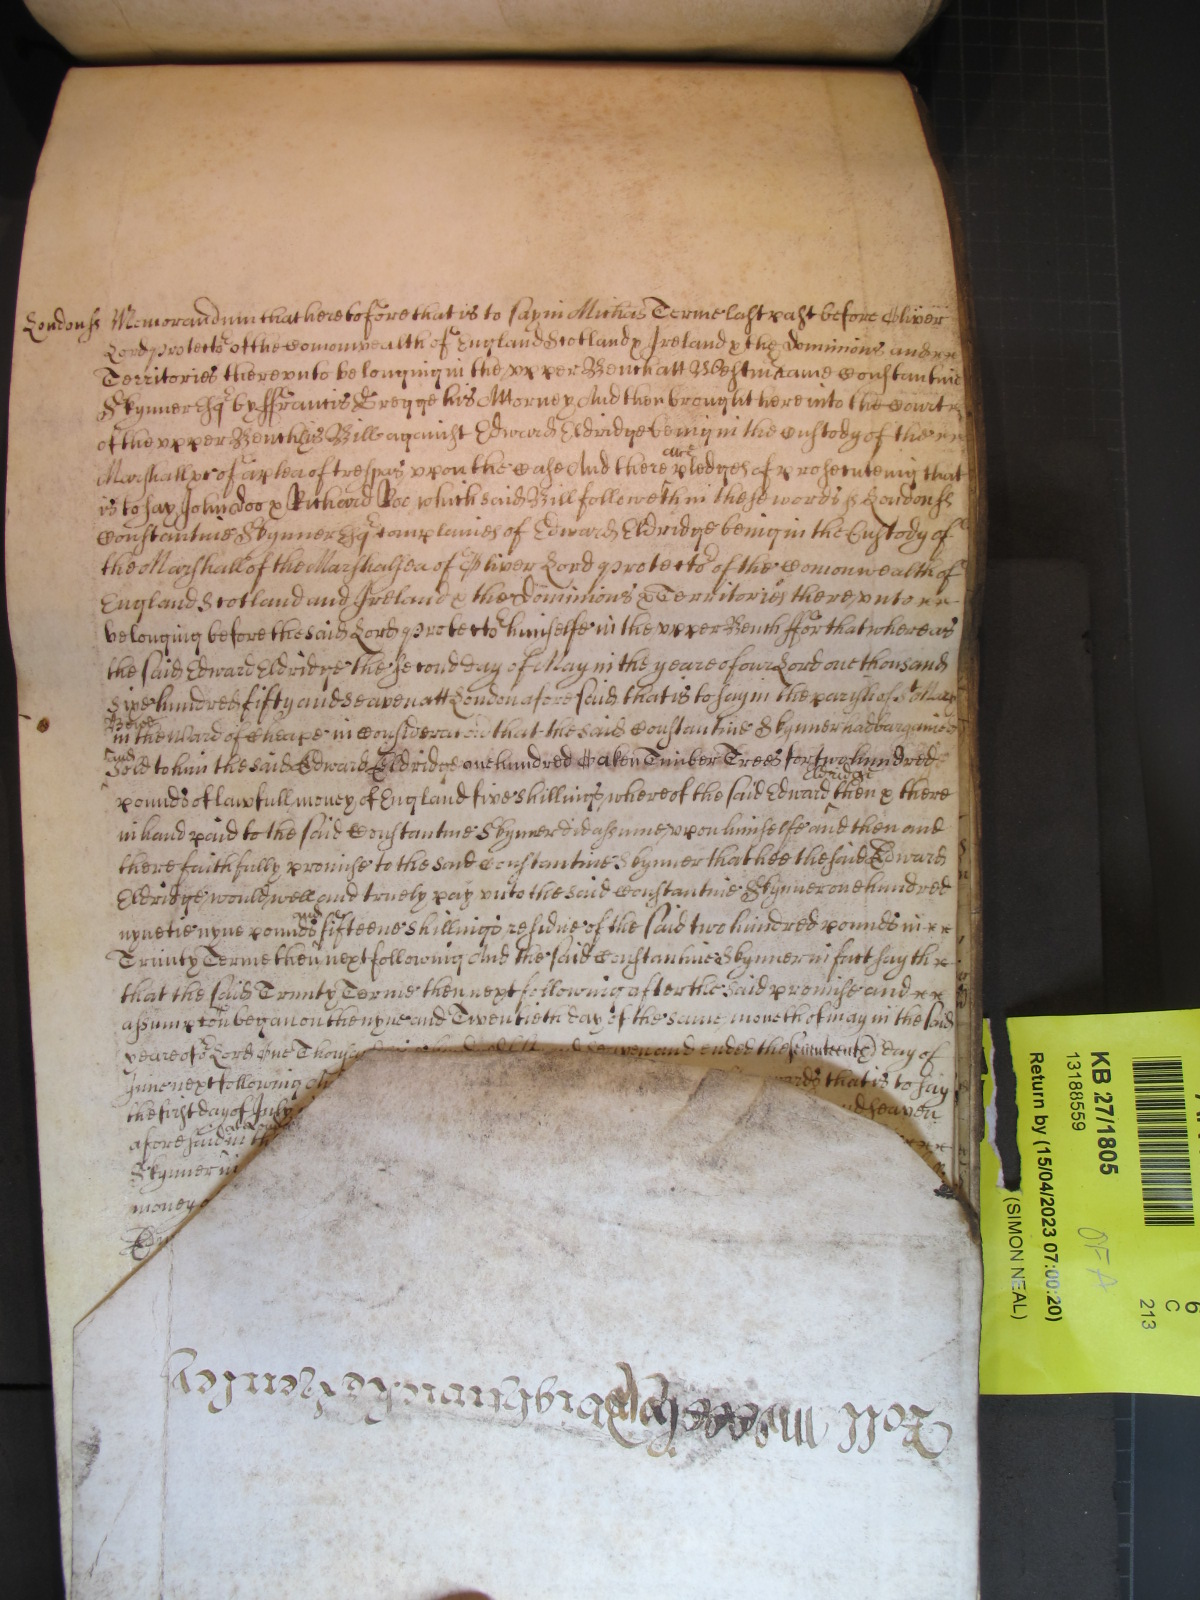 Londonss Memorandum that heretofore that is to say in Michas Terme last past before Oliver
Lord protector of the Comonwealth of England Scotland & Ireland & the Dominions and
Territories thereunto belonging in the upper Bench att Westm came Constantine
Skynner Esqr by ffrancis Gregge his Attorney And then brought here into the Court
of the upper Bench his Bill against Edward Eldridge being in the Custody of the
Marshall &c of a plea of trespas upon the Case And there are pledges of prosecuteing that
is to say John Doo & Richard Roe which said Bill followeth in these words ss Londonss
Constantine Skynner Esqr complaines of Edward Eldridge being in the Custody of
the Marshall of the Marshalsea of Oliver Lord protector of the Comonwealth of
England Scotland and Ireland & the Dominions & Territories thereunto
belonging before the said Lord protector himselfe in the upper Bench ffor that whereas
the said Edward Eldridge the second day of May in the yeare of our Lord one thousand
six hundred fifty and seaven att London aforesaid that is to say in the parish of St Mary
Bowe in the Ward of Cheape in Consideration that the said Constantine Skynner had bargained
and sold to him the said Edward Eldridge one hundred Oaken Timber Trees for two hundred
pounds of lawfull money of England five shillings whereof the said Edward Eldridge then & there
in hand paid to the said Constantine Skynner did assume upon himselfe and then and
there faithfully promise to the said Constantine Skynner that hee the said Edward
Eldridge would well and truely pay unto the said Constantine Skynner one hundred
nynetie nyne pounds and fifteene shillings residue of the said two hundred pounds in
Trinity Terme then next following And the said Constantine Skynner in fact sayth
that the said Trinity Terme then next following after the said promise and
assumption began on the nyne and Twentieth day of the same moneth of may in the said
yeare of or Lord One Thousand and ended the seventeenth day of
June next following that is to say
the first day of July and seaven
aforesaid in the
Skynner in
money
Roll Brightwen
KB 27/1805
13188559
Return by (15/04/2023 07:00:20)
(SIMON NEAL)
OFA
6
C
213